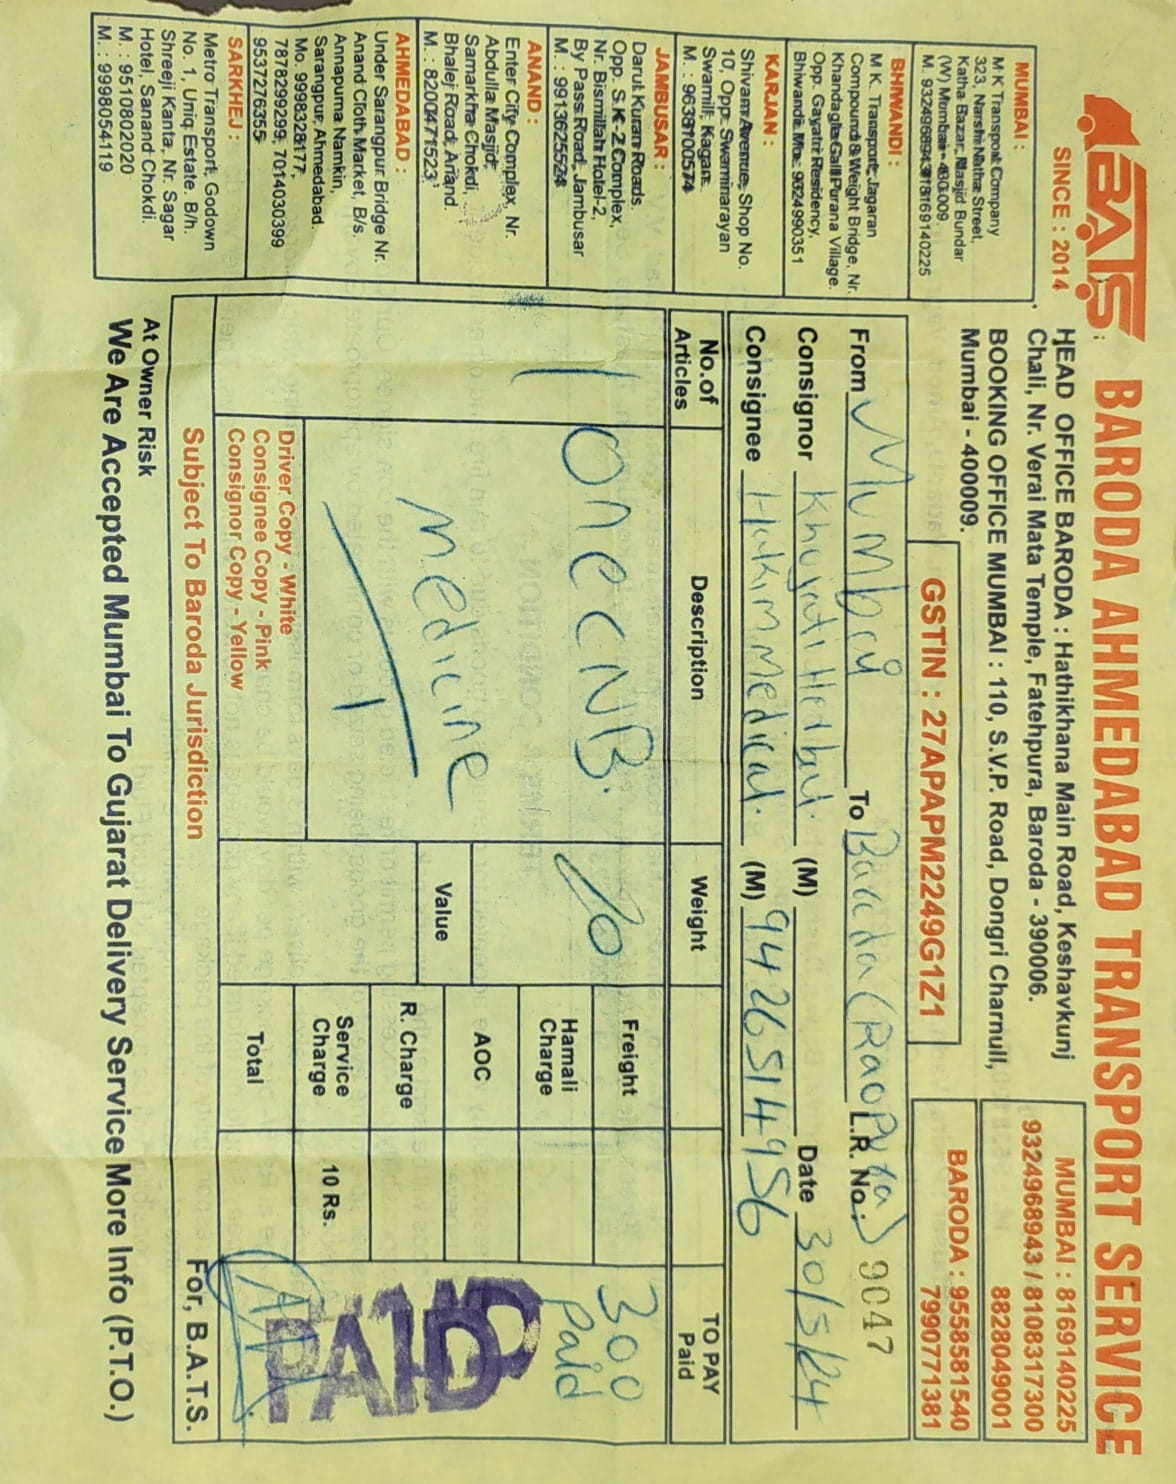 BATS
SINCE : 2014
BARODA AHMEDABAD TRANSPORT SERVICE
HEAD OFFICE BARODA : Hathikhana Main Road, Keshavkunj
Chali, Nr. Verai Mata Temple, Fatehpura, Baroda - 390006.
BOOKING OFFICE MUMBAI : 110, S.V.P. Road, Dongri Charnull,
Mumbai - 400009.
MUMBAI : 8169140225
9324968943 / 8108317300
8828049001
BARODA : 9558581540
7990771381
GSTIN : 27APAPM2249G1Z1
MUMBAI :
M K Transpot Company
323, Narshi Natha Street,
Katha Bazar, Masjid Bundar
(W) Mumbai - 400009.
M. 9324968943 / 8169140225
BHIWANDI :
M K. Transport, Jagaran
Compound & Weight Bridge, Nr.
Khandagale Gali Purana Village.
Opp. Gayatri Residency,
Bhiwandi. Mo.: 9324990351
KARJAN :
Shivam Avenue, Shop No.
10, Opp. Swaminarayan
Swamill, Kagan.
M. : 9638100574
JAMBUSAR :
Darul Kuran Roads.
Opp. S.K-2 Complex,
Nr. Bismillah Hotel-2,
By Pass Road, Jambusar
M. : 9913625524
ANAND :
Enter City Complex, Nr.
Abdulla Masjid,
Samarkha Chokdi,
Bhalej Road, Anand.
M. : 8200471523
AHMEDABAD :
Under Sarangpur Bridge Nr.
Anand Cloth Market, B/s.
Annapurna Namkin,
Sarangpur, Ahmedabad.
Mo. 9998328177,
7878299299, 7014030399
9537276355
SARKHEJ :
Metro Transport, Godown
No. 1, Umiq Estate. B/h.
Shreeji Kanta, Nr. Sagar
Hotel, Sanand Chokdi.
M. : 9510802020
M. : 9998054119
From Mumbai To Baroda (Raopura) L.R. No.: 9047
Consignor Khyati Herbal. (M) Date 30/5/24
Consignee Hakim Medical. (M) 9426514956
No.of Articles Description Weight TO PAY Paid
1 One CNB. 10 Freight 300
Medicine Hamali Charge Paid
AOC
Value R. Charge
Service Charge 10 Rs.
Total
PAID
PAID
Driver Copy - White
Consignee Copy - Pink
Consignor Copy - Yellow
Subject To Baroda Jurisdiction For, B.A.T.S.
At Owner Risk
We Are Accepted Mumbai To Gujarat Delivery Service More Info (P.T.O.)